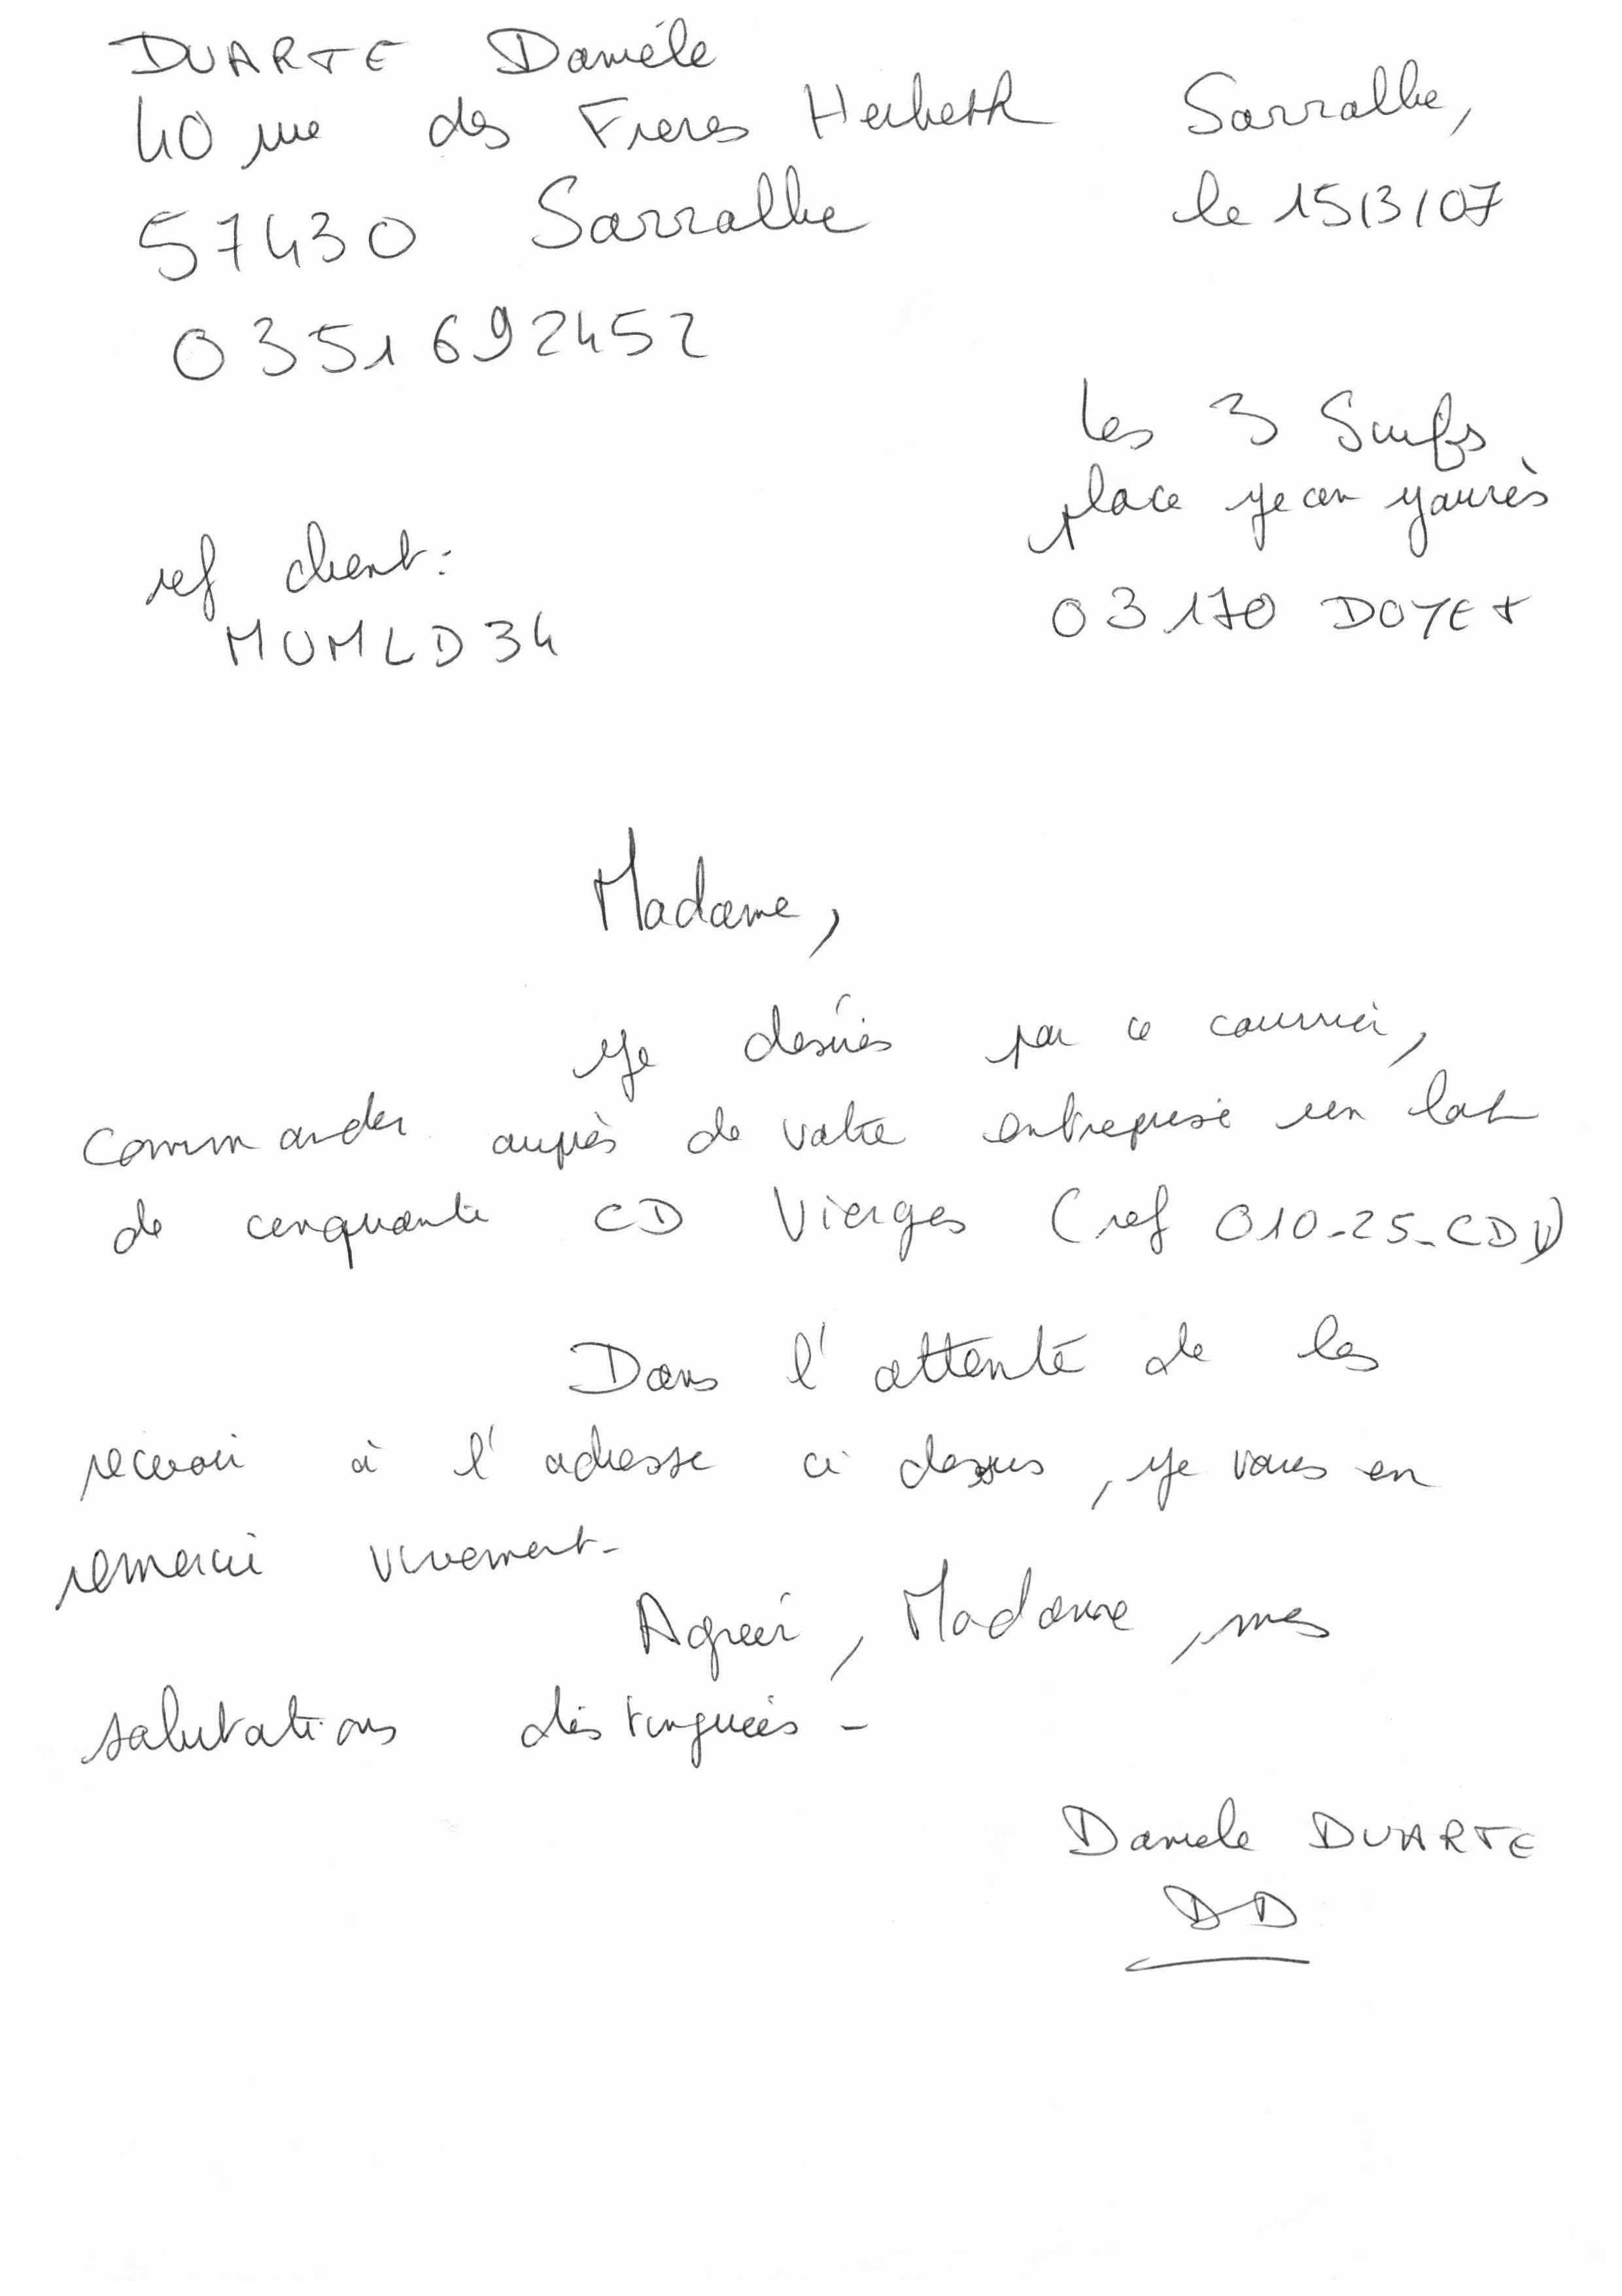 DUARTE Danièle
40 rue des Freres Herbeth
Sarralbe,
57430 Sarralbe
le 15/3/07
0351692452
Les 3 Surfs
place jean jaurès
03170 DOYET
ref client:
MUMLD34
Madame,
Je désires par ce courrier,
Commander auprès de votre entreprise un lot
de cinquante CD Vierges (ref 010-25-CDV)
Dans l'attente de les
recevoir à l'adresse ci dessus, je vous en
remercie vivement.
Agréer, Madame, mes
salutations distinguées -
Daniele DUARTE
DD